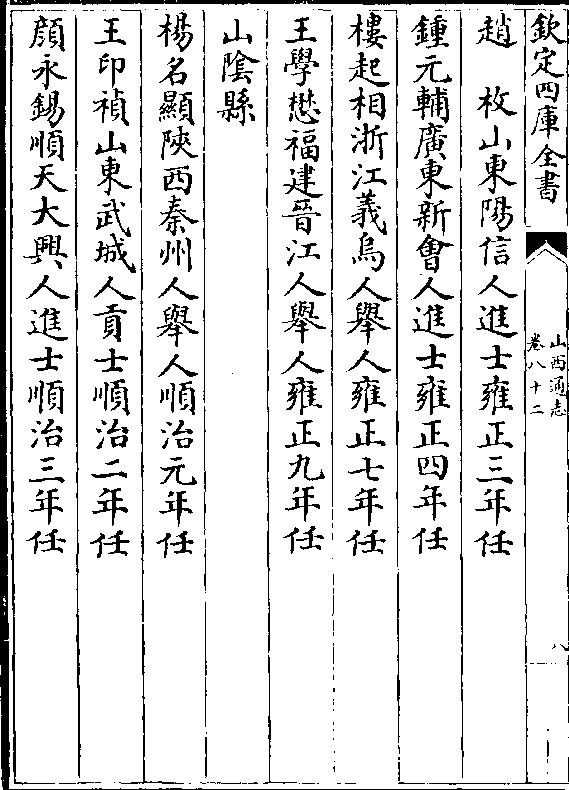 欽定四庫全書
山西通志
卷八十二
八
趙 枚山東陽信人進士雍正三年任
鍾元輔廣東新會人進士雍正四年任
樓起相浙江義烏人舉人雍正七年任
王學懋福建晉江人舉人雍正九年任
山陰縣
楊名顯陜西秦州人舉人順治元年任
王印禎山東武城人貢士順治二年任
顔永錫順天大興人進士順治三年任